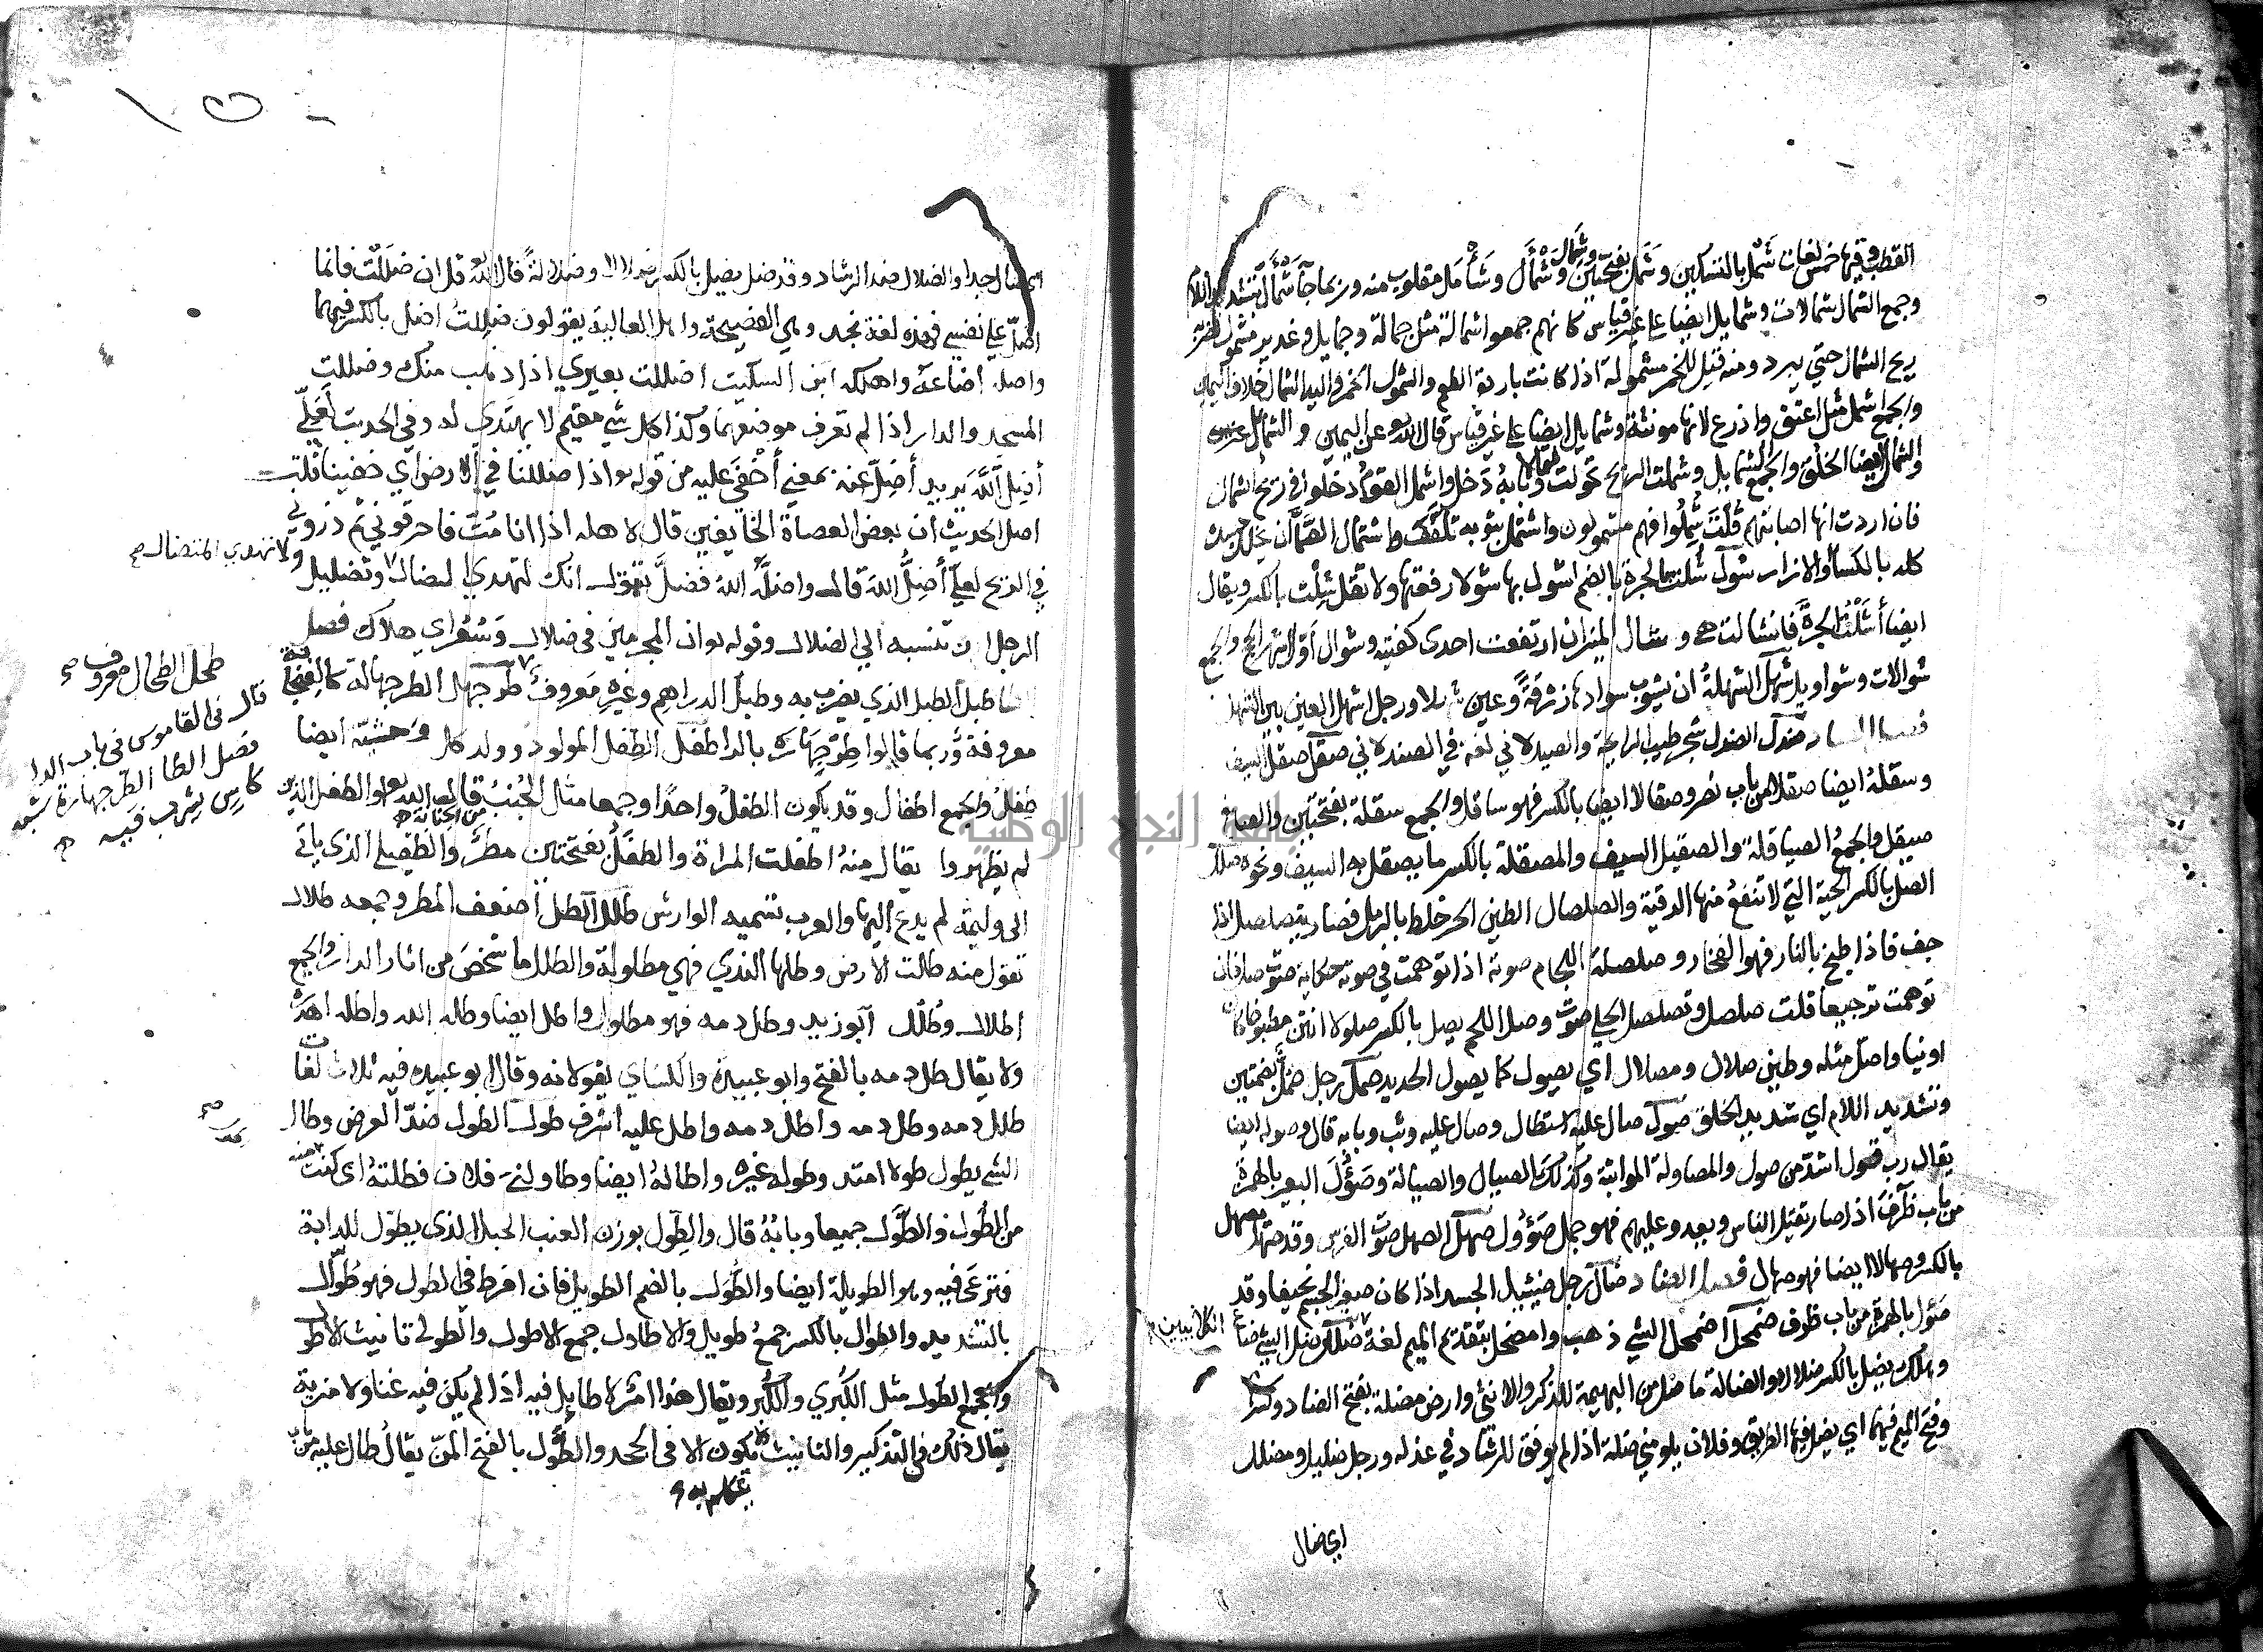 القطب وفيها خمس لغات شَمْل بالتسكين وشَمَل بفتحتين وشَمَال وشَمْأَل وشَأْمَل مقلوب منه وربما جآ شَمْأَلّ بتشديد اللام
وجمع الشمال شمالات وشمايل ايضا على غير قياس كانهم جمعوا شمالة مثل حمالة وحمايل وغدير مشمول تضربه
ريح الشمال حتي يبرد ومنه قيل للخمر مشمولة اذا كانت باردة الطعم والشمول الخمر واليد الشمال خلاف اليمين
والجمع اشمل مثل اعنق واذرع لانها مونثة وشمايل ايضا على غير قياس قال الله تعو عن اليمين والشمائل
والشمال ايضا الخلق والجمع الشمايل وشملت الريح تحولت شمالا وبابه دخل واشمل القوم دخلوا في ريح الشمال
فان اردت انها اصابتهم قلت شُمِلُوا فهم مشمولون واشتمل بثوبه تلفّف واشتمال الصّمّآ ان يجلل جسده
كله بالكسآ او الازار شول شُلت بالجرة بالضم اشول بها شولا رفعتها ولا تقل شِلْت بالكسر ويقال
ايضا أشَلْتُ الجرّة فانشالت هي وشال الميزان ارتفعت احدى كفتيه وشوال اوّل اشهر الحج والجمع
شوالات وشواويل شهل الشهلةُ ان يشوب سوادها زرقةً وعين شهلا ورجل اشهل العين بين الشهل
فصل الصاد صندل الصندل شجر طيب الرايحة والصيدلاني لغة في الصندلاني صقل صقل السيف
وسقلهُ ايضا صقلا من باب نصر وصقالا ايضا بالكسر فهو ساقل والجمع سقلة بفتحتين والصانع
صيقل والجمعُ الصياقلة والصقيل السيف والمصقلة بالكسر ما يصقل به السيف ونحوه صلل
الصل بالكسر الحية التي لا تنفعُ منها الرقية والصلصال الطين الحر خلط بالرمل فصار يتصلصل اذا
جف فاذا طبخ بالنار فهو الفخار وصلصلة اللجام صوته اذا توهمت في صوته حكاية صوت صل فان
توهمت ترجيعا قلت صلصل وتصلصل الحلي صوت وصل اللحم يصل بالكسر صلولا انتن مطبوخا كان
او نيا واصل مثله وطين صلال ومصلال اي يصول كما يصول الحديد صمل رجل صُمُلّ بضمتين
وتشديد اللام اي شديد الخلق صول صال عليه استطال وصال عليه وثب وبابه قال وصوله ايضا
يقال رب قول اشدّ من صول والمصاولة المواثبة وكذلك الصيال والصيالة وصَؤُلَ البعير بالهمزة
من باب ظرُفَ اذا صار يقتل الناس ويعدو عليهم فهو جمل صَؤُول صهل الصهل صوت الفرس وقد صهل يصهل
بالكسر وصهالا ايضا فهو صهال فصل الضاد ضأل رجل ضئيل الجسد اذا كان صغير الجسم نحيفا وقد
ضَؤل بالهمزة من باب ظرف ضمحل اضمحل الشي ذهب وامضحل بتقديم الميم لغة ضلل ضل الشي ضاع
الكلابيين
وهلك يضل بالكسر ضلالا والضالة ما ضل من البهيمة للذكر والانثي وارض مضلة بفتح الضاد وكسرها
وفتح الميم فيهما اي يضل فيها الطريق وفلان يلومني ضلة اذا لم يوفق للرشاد في عذله ورجل ضليل ومضلل
اي ضال
اي ضال جدا والضلال ضد الرشاد وقد ضل يضل بالكسر ضلالا وضلالةً قال الله تعو قل ان ضللت فانما
اضلّ علي نفسي فهذه لغة نجد وهي الفصيحة واهل العالية يقولون ضللتُ اضل بالكسر فيهما
واضله اضاعه واهلكه ابن السكيت اضللت بعيري اذا ذهب منك وضللت
المسجد والدار اذا لم تعرف موضعهما وكذا كل شي مقيم لا يهتدي له وفي الحديث لَعَلِّي
أضِلّ اللَّهَ يريد أضِلّ عنه بمعني أخْفَى عليه من قوله تعو اذا ضللنا في الارض اي خفينا قلت
اصل الحديث ان بعض العصاة الخايفين قال لاهله اذا انا مُتّ فاحرقوني ثم ذروني
في الريح لعلّي أضِلُّ اللهَ قال واضلّه الله فضلَّ تقول انك لتهدي الضال وتضليل
ولا تهدي المتضال صح
الرجل ان تنسبه الي الضلال وقوله تعو ان المجرمين في ضلال وسُعُر اي هلاك فصل
الطا طبل الطبل الذي يضرب به وطبل الدراهم وغيره مَعروفٌ طرجهل الطرجهالة كالفنجانة
معروفة وربما قالوا طِرْجِهَارة بالرا طفل الطِفْل المولود وولد كل وَحشيّة ايضا
طِفْلٌ والجمع اطفال وقد يكون الطفلُ واحدًا وجمعا مثال الجُنب قال الله تعو او الطفل الذين
من الجنابة
لم يظهروا يقال منهُ اطفلت المراة والطفَلُ بفتحتين مطرٌ والطفيلي الذي ياتي
الى وليمة لم يدع اليها والعرب تسميه الوارش طلل الطل اضعف المطر وجمعه طلال
تقول منه طالت الارض وطلها الندي فهي مطلولة والطلل ما شخصَ من اثار الدار والجمع
اطلال وطُلُل ابوزيد وطل دمه فهو مطلول واطل ايضا وطله الله واطله اهدَرَه
ولا يقال طل دمه بالفتح وابو عبيدة والكساي يقولانه وقال ابو عبيدة فيه ثلاث لغات
طلل دمه وطل دمه واطل دمه واطل عليه اشرف طول الطول ضدّ العرض وطال
الشي يطول طولا امتد وطوله غيرُه واطالهُ ايضا وطاولني فلان فطلتهُ اي كنت اطول منه
من الطُول والطَّول جميعا وبابُهُ قال والطِوَل بوزن العنب الحبل الذي يطوّل للدابة
فترعَى فيه وهو الطويلة ايضا والطُوال بالضم الطويل فان افرط في الطول فهو طُوّال
بالتشديد والطِوال بالكسر جمعُ طويل والاطاول جمع الاطول والطولى تانيث الاطول
والجمع الطُول مثل الكُبري والكُبَر ويقال هذا امْر لا طايِلَ فيه اذا لم يكن فيه غنا ولا مزية
يقال ذلك في التذكير والتانيث ولا يتكلم به الا في الجحد والطَّول بالفتح المنّ يقالُ طال عليه منّ
طحل الطحال معروف صح
قال في القاموس في باب الرا
فصل الطا الطرجهارة شبه
كاس يشرب فيه
جامعة النجاح الوطنية